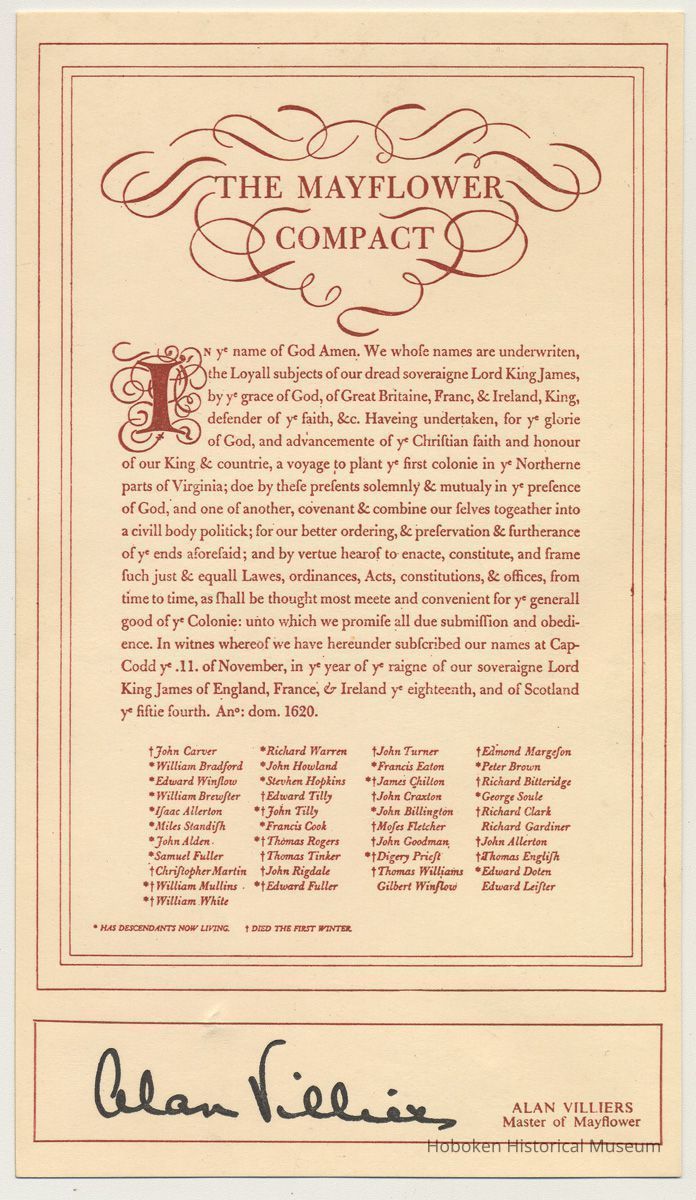 THE MAYFLOWER
COMPACT
IN yᵉ name of God Amen. We whoſe names are underwriten,
the Loyall subjects of our dread soveraigne Lord King James,
by yᵉ grace of God, of Great Britaine, Franc, & Ireland, King,
defender of yᵉ faith, &c. Haveing undertaken, for yᵉ glorie
of God, and advancemente of yᵉ Chriſtian faith and honour
of our King & countrie, a voyage to plant yᵉ first colonie in yᵉ Northerne
parts of Virginia; doe by theſe preſents solemnly & mutualy in yᵉ preſence
of God, and one of another, covenant & combine our ſelves togeather into
a civill body politick; for our better ordering, & preſervation & furtherance
of yᵉ ends aforeſaid; and by vertue hearof to enacte, constitute, and frame
ſuch just & equall Lawes, ordinances, Acts, constitutions, & offices, from
time to time, as ſhall be thought most meete and convenient for yᵉ generall
good of yᵉ Colonie: unto which we promiſe all due submiſſion and obedi-
ence. In witnes whereof we have hereunder subſcribed our names at Cap-
Codd yᵉ .11. of November, in yᵉ year of yᵉ raigne of our soveraigne Lord
King James of England, France, & Ireland yᵉ eighteenth, and of Scotland
yᵉ fiftie fourth. Anᵒ: dom. 1620.
†John Carver
*William Bradford
*Edward Winſlow
*William Brewſter
*Iſaac Allerton
*Miles Standiſh
*John Alden
*Samuel Fuller
†Chriſtopher Martin
*†William Mullins
*†William White
*Richard Warren
*John Howland
*Stevhen Hopkins
†Edward Tilly
*†John Tilly
*Francis Cook
*†Thomas Rogers
†Thomas Tinker
†John Rigdale
*†Edward Fuller
†John Turner
*Francis Eaton
*†James Chilton
†John Craxton
*John Billington
†Moſes Fletcher
†John Goodman
*†Digery Prieſt
†Thomas Williams
Gilbert Winſlow
†Edmond Margeſon
*Peter Brown
†Richard Bitteridge
*George Soule
†Richard Clark
Richard Gardiner
†John Allerton
†Thomas Engliſh
*Edward Doten
Edward Leiſter
* HAS DESCENDANTS NOW LIVING. † DIED THE FIRST WINTER.
Alan Villiers
ALAN VILLIERS
Master of Mayflower
Hoboken Historical Museum